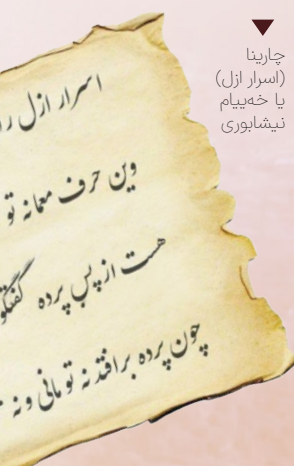 چارینا
(اسرار ازل)
یا خەییام
نیشابوری
اسرار ازل را
وین حرف معما نه تو
هست از پس پرده گفتگو
چون پرده برافتد نه تو مانی و نه